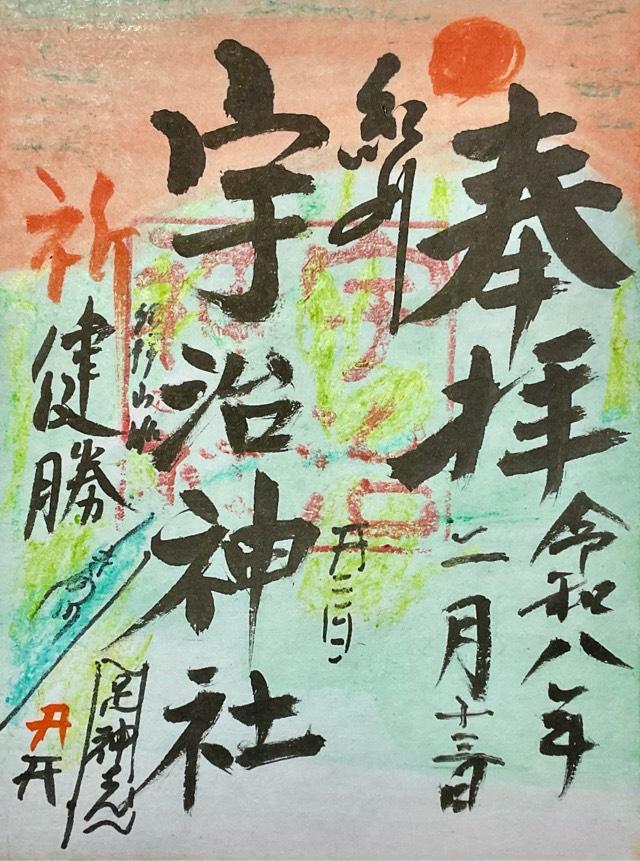 奉拝
令和八年
二月十三日
紀州
宇治神社
祈
健勝
足神さん